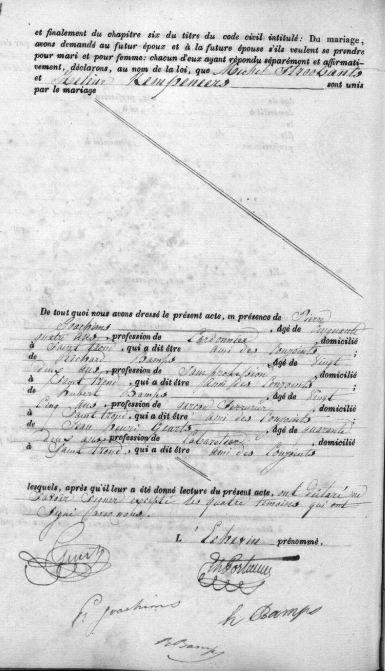 et finalement du chapitre six du titre du code civil intitulé: Du mariage,
avons demandé au futur époux et à la future épouse s'ils veulent se prendre
pour mari et pour femme: chacun d'eux ayant répondu séparément et affirmati-
vement, déclarons, au nom de la loi, que Michel Strackants
et Kempeneers sont unis
par le mariage
De tout quoi nous avons dressé le présent acte, en présence de Pierre
Joachims, âgé de cinquante
quatre ans, profession de Cordonnier, domicilié
à Saint trond, qui a dit être ami des conjoints;
de Richard Bamps, âgé de vingt
deux ans, profession de sans profession, domicilié
à Saint trond, qui a dit être ami des conjoints;
de hubert Bamps, âgé de vingt
cinq ans, profession de garçon serrurier, domicilié
à Saint trond, qui a dit être ami des conjoints;
de Jean henri, âgé de quarante
deux ans, profession de cabaretier, domicilié
à Saint trond, qui a dit être ami des conjoints
lesquels, après qu'il leur a été donné lecture du présent acte, ont déclaré ne
savoir signer excepté les quatre témoins qui ont
signé avec nous.
L' Echevin prénommé.
P. Joachims
h Bamps
R Bamps